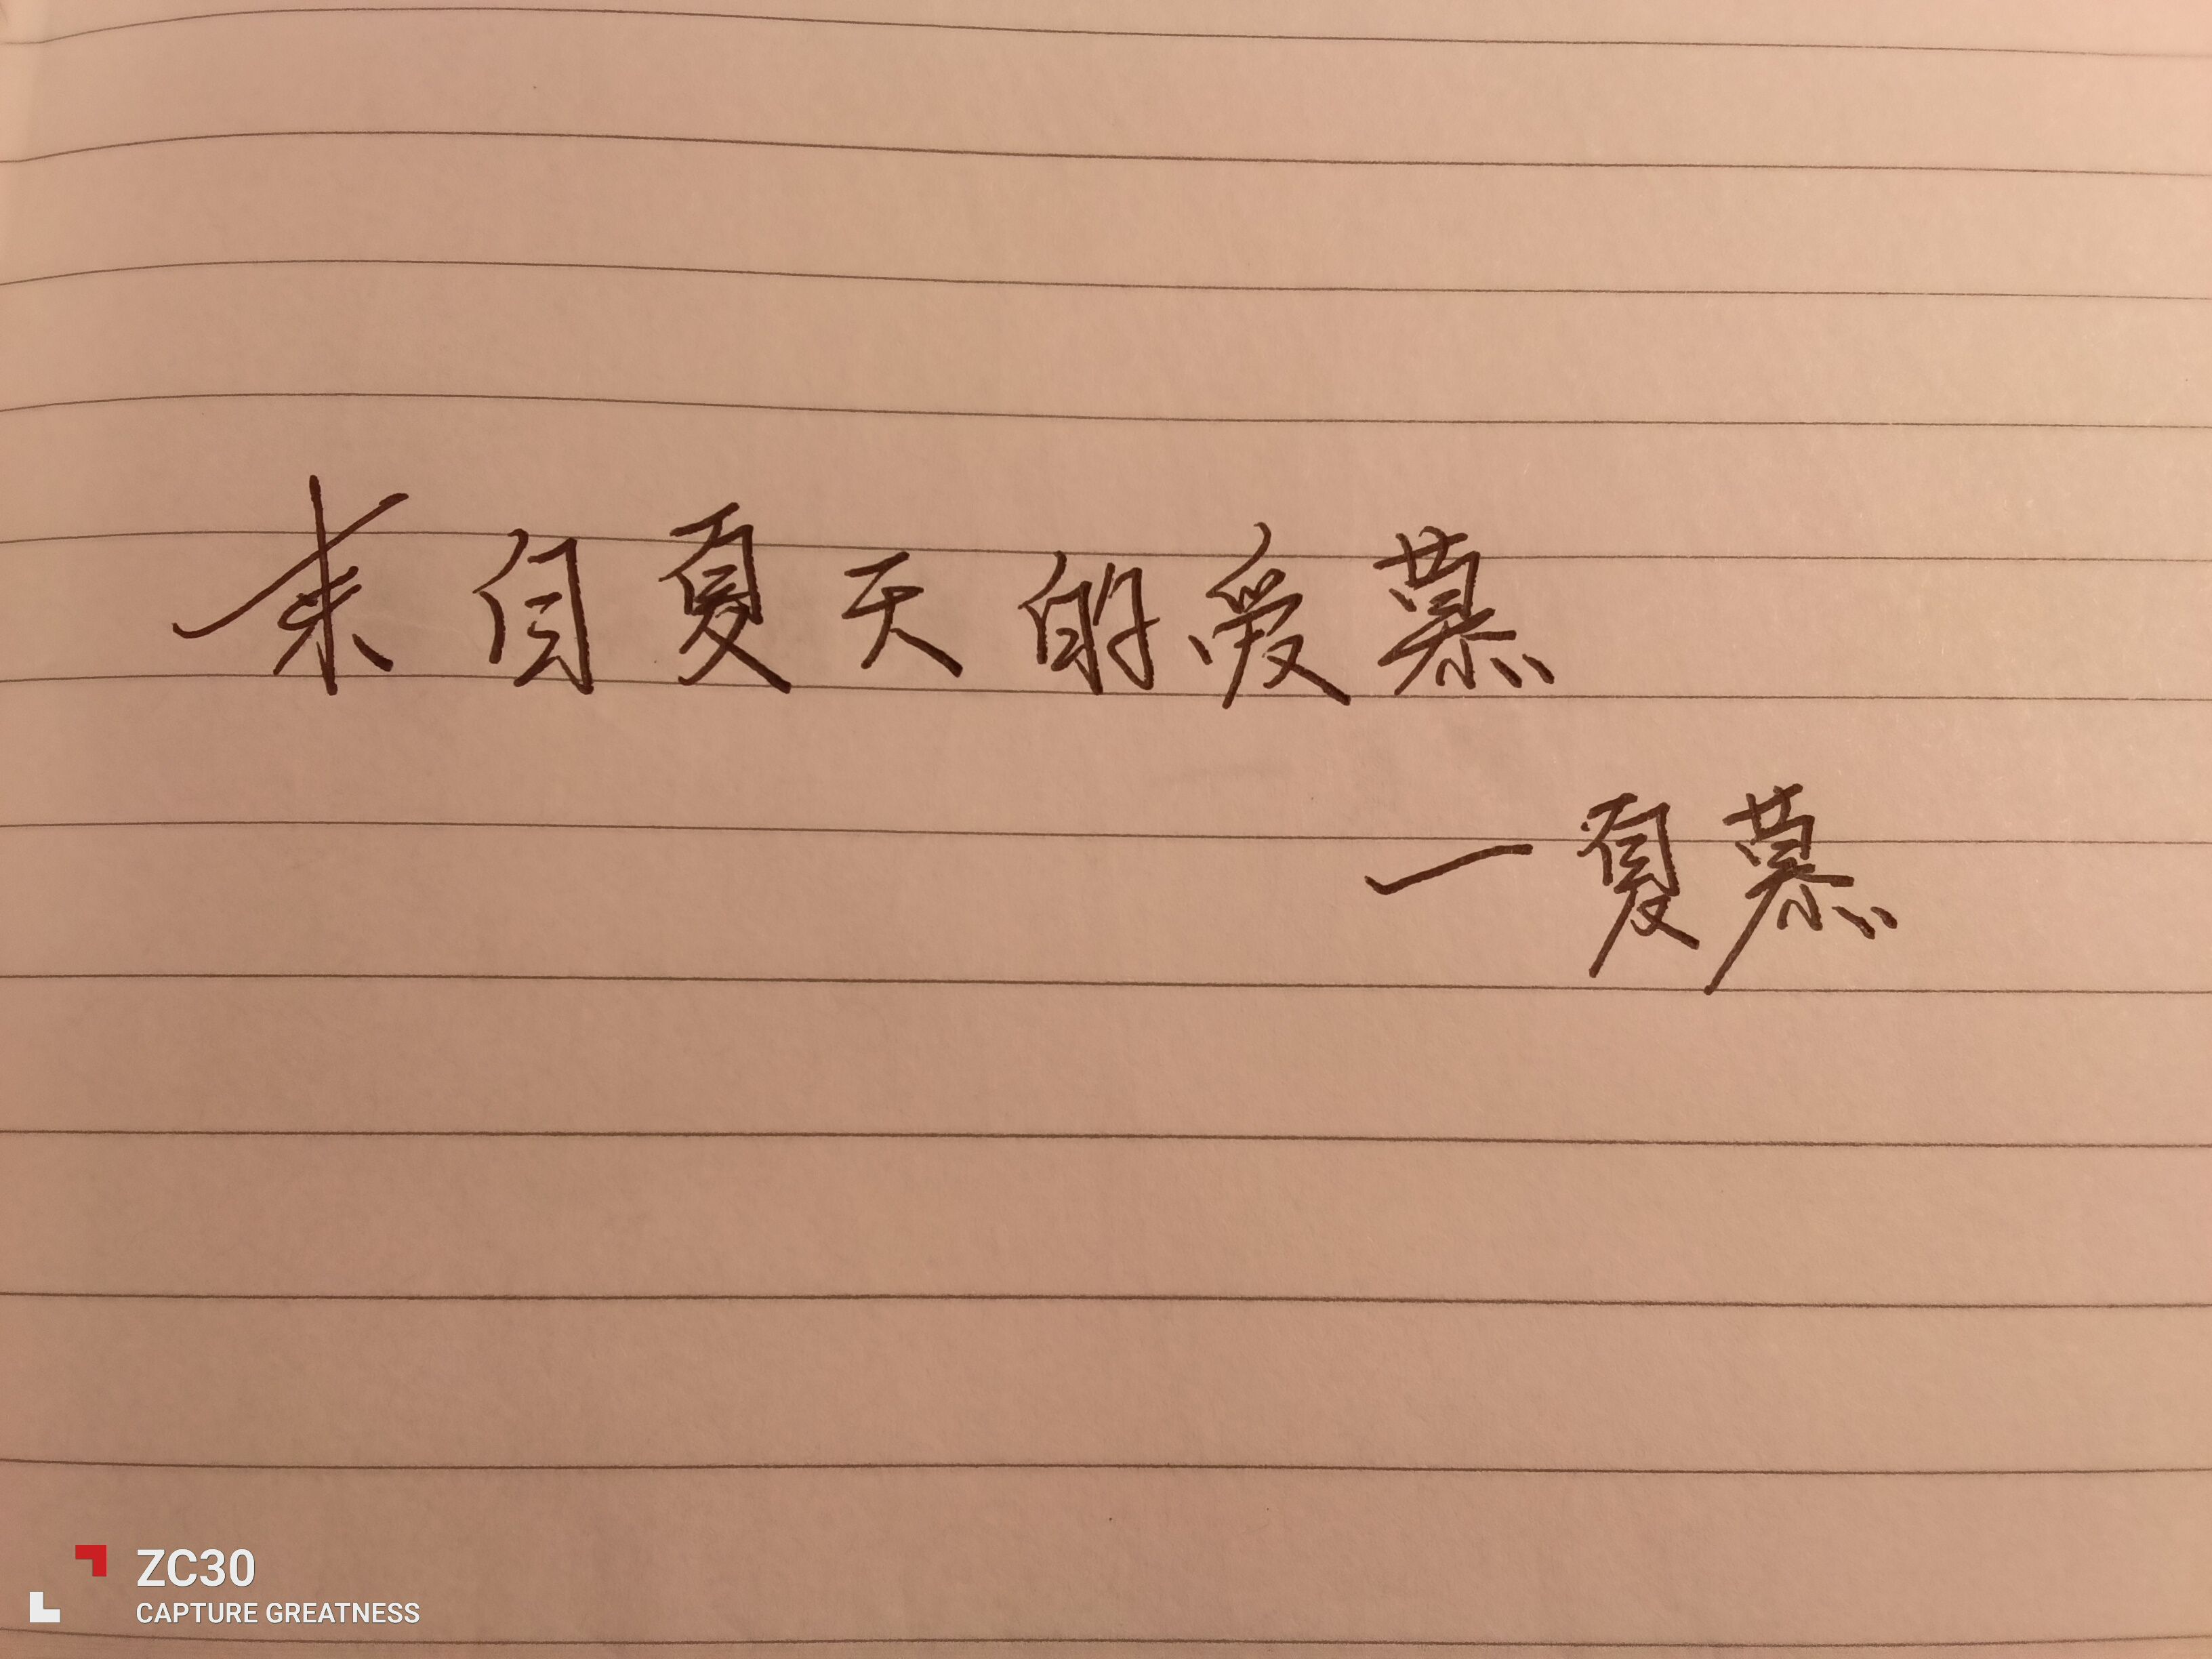 来自夏天的爱慕
一夏慕
ZC30
CAPTURE GREATNESS